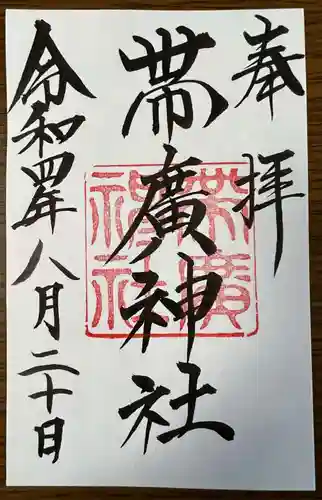 奉拝
帯廣神社
帯廣神社
令和四年八月二十日